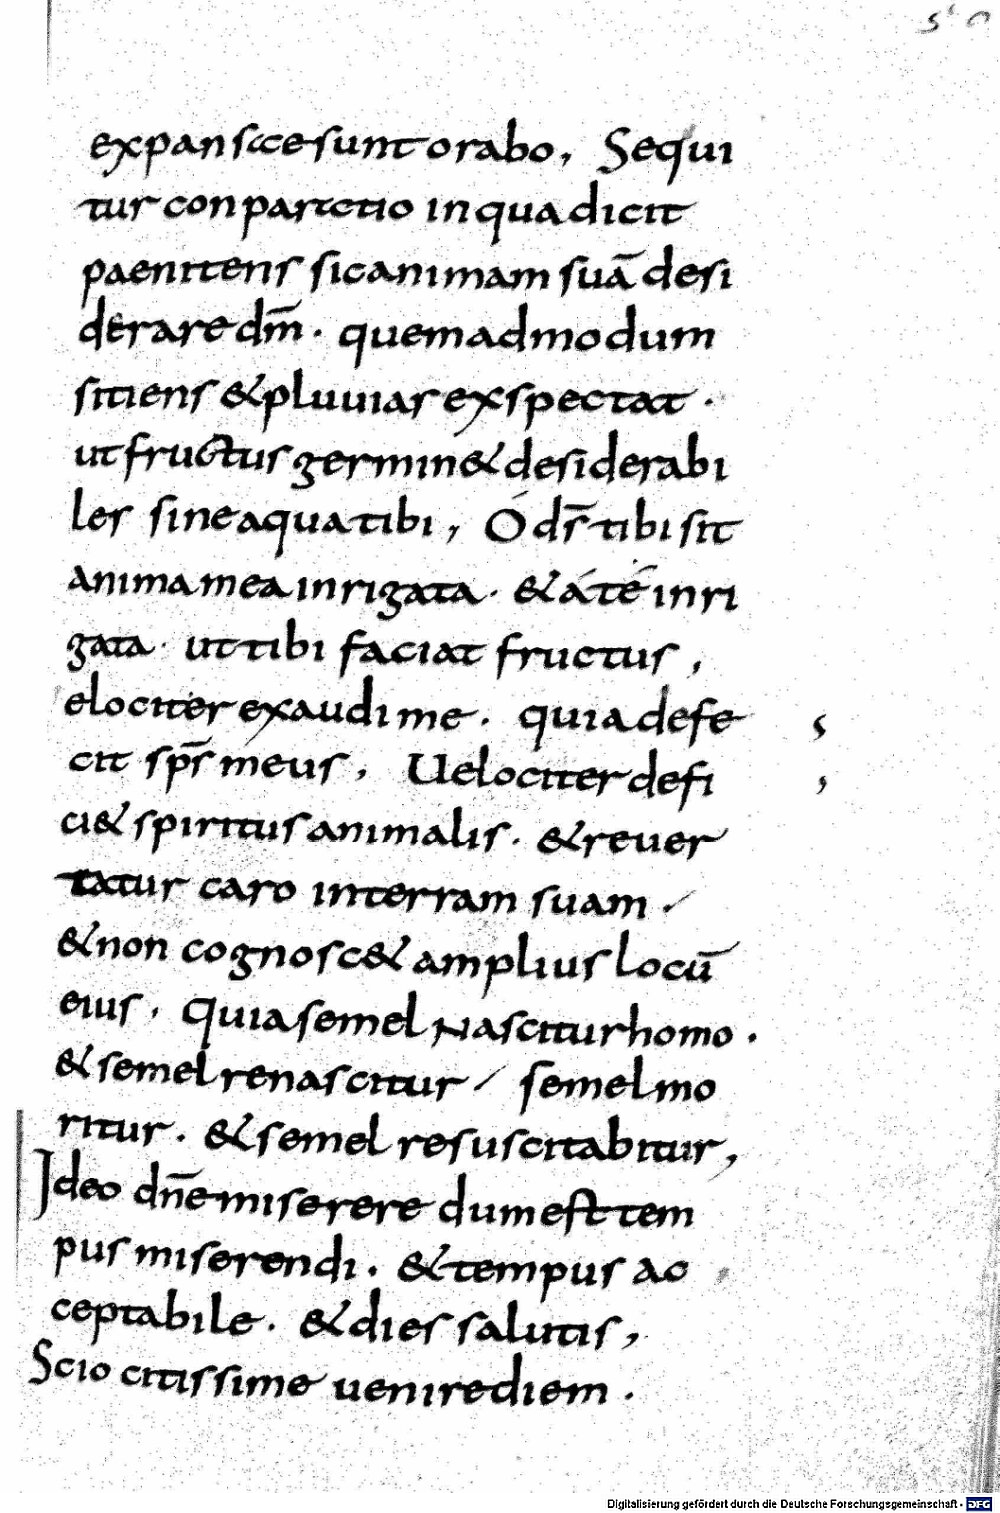 expansae sunt orabo, Sequi
tur conparatio in qua dicit
paenitens sic animam suā desi
derare dm̄. quemadmodum
sitiens & pluuias exspectat.
ut fructus germin& desiderabi
les sine aqua tibi, Ó ds̄ tibi sit
anima mea inrigata. & á té inri
gata. ut tibi faciat fructus,
elociter exaudi me. quia defe
cit sps̄ meus, Uelociter defi
ci& spiritus animalis. & reuer
tatur caro in terram suam.
& non cognosc& amplius locū
eius, quia semel Nascitur homo.
& semel renascitur / semel mo
ritur. & semel resuscitabitur,
Ideo dn̄e miserere dum est tem
pus miserendi. & tempus ac
ceptabile. & dies salutis,
Scio citissime uenire diem.
Digitalisierung gefördert durch die Deutsche Forschungsgemeinschaft - DFG